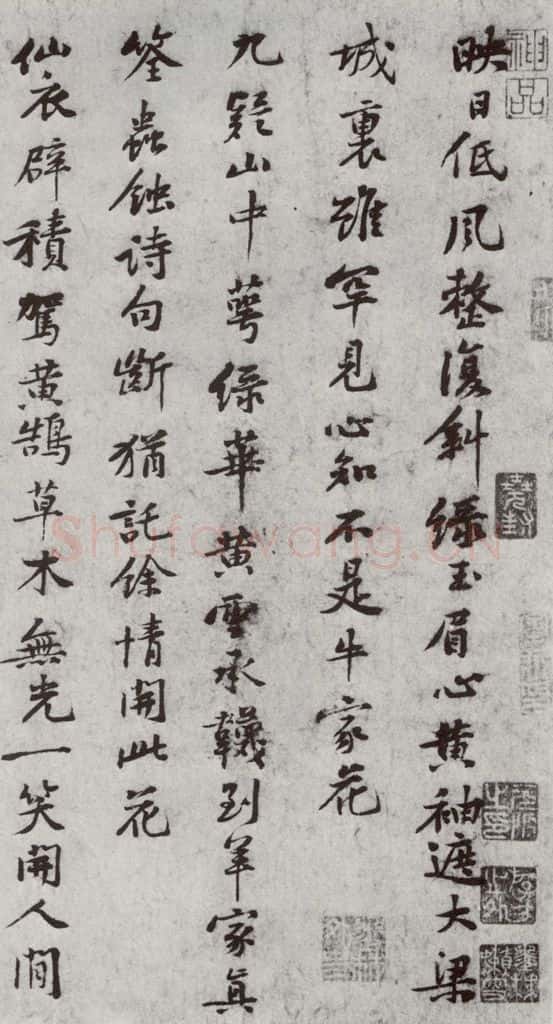 映日低風整復斜緑玉眉心黄袖遮大梁
城裏雖罕見心知不是牛家花
九疑山中萼緑華黄雲承襪到羊家真
筌蟲蝕詩句斷猶託餘情開此花
仙衣襞積駕黄鵠草木無光一笑開人間
神品
Shufawang.CN